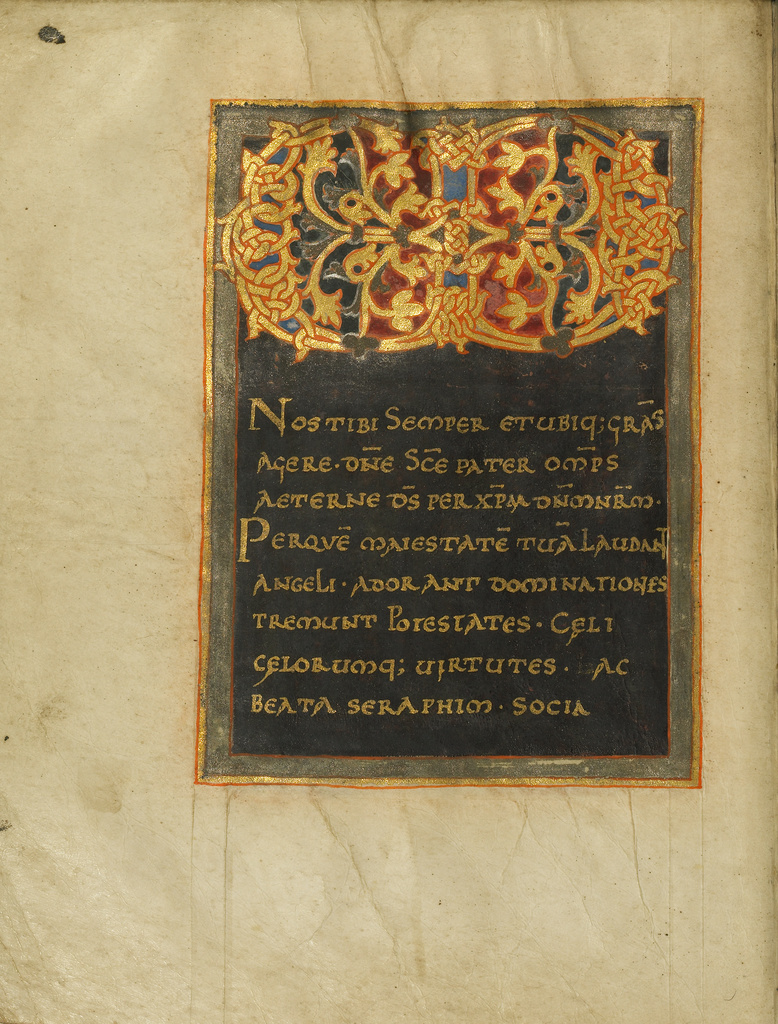 NOS TIBI SEMPER ET UBIQ; GRAS̄
AGERE · DN̄E SC̄E PATER OMP̄S
AETERNE DS̄ PER XP̄M DN̄M NR̄M ·
PER QVĒ MAIESTATĒ TUĀ LAUDANT
ANGELI · ADORANT DOMINATIONES
TREMUNT POTESTATES · CĘLI
CĘLORUMQ; UIRTUTES · AC
BEATA SERAPHIM · SOCIA